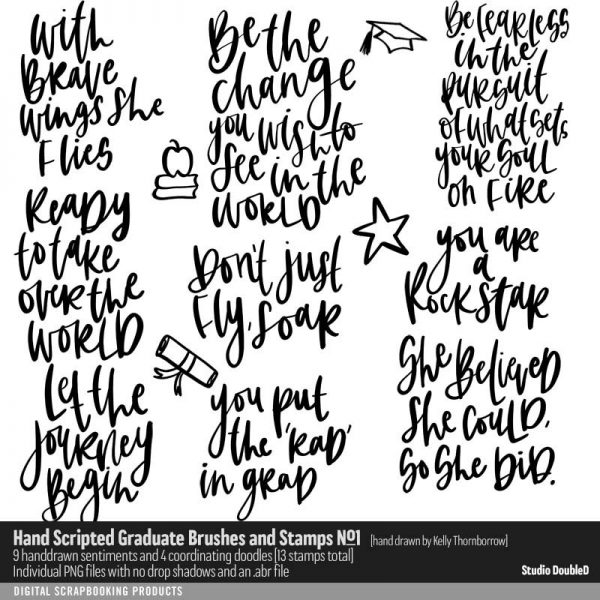 With
Brave
wings she
Flies
Ready
to take
over the
World
Let the
Journey
Begin
Be the
change
you wish to
See in the
World
Don't just
Fly, Soar
you put
the 'Rad'
in grad
Be fearless
in the
pursuit
of what sets
your soul
on fire
you are
a
Rockstar
She Believed
She Could,
So She Did.
Hand Scripted Graduate Brushes and Stamps Nº1 [hand drawn by Kelly Thornborrow]
9 handdrawn sentiments and 4 coordinating doodles [13 stamps total]
Individual PNG files with no drop shadows and an .abr file
Studio DoubleD
DIGITAL SCRAPBOOKING PRODUCTS